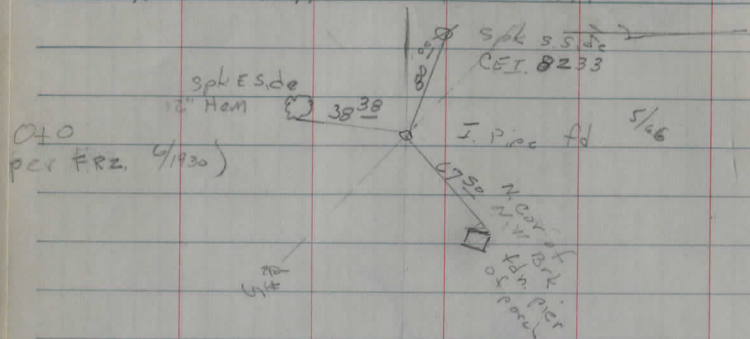 Spk S. Side
CEI. 8233
Spk E Side
12" Hem
38 38
88
I. Pipe fd 5/46
0+0
per FRZ. 6/1930)
67 50
N. Cor of
N.W. Brk
fdn. pier
of porch